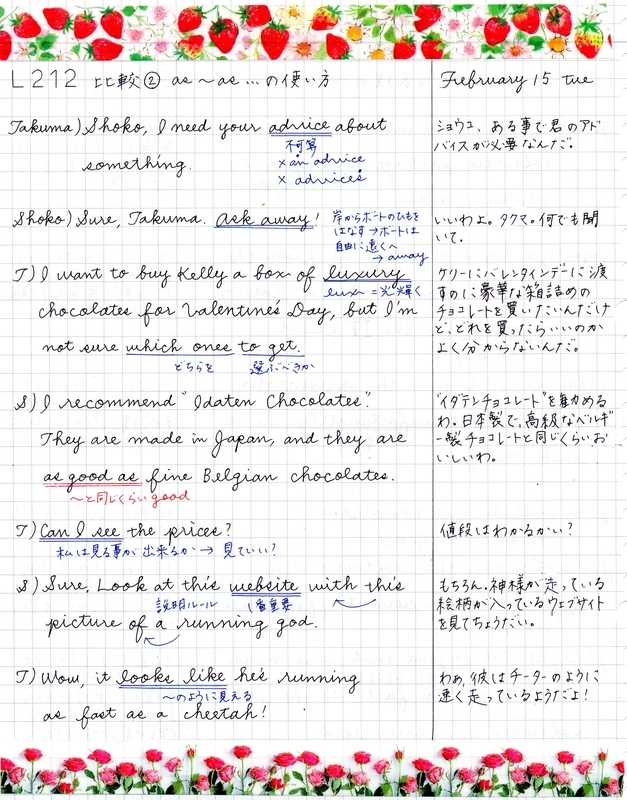 L212 比較② as ~ as … の使い方
February 15 tue
Takuma) Shoko, I need your advice about
不可算
something.
× an advice
× advices
ショウコ、ある事で君のアド
バイスが必要なんだ。
Shoko) Sure, Takuma. Ask away!
岸からボートのひもを
はなす → ボートは
自由に遠くへ
→ away
いいわよ。タクマ。何でも聞
いて。
T) I want to buy Kelly a box of luxury
lux = 光輝く
chocolates for Valentine's Day, but I'm
not sure which ones to get.
どちらを 選ぶべきか
ケリーにバレンタインデーに渡
すのに豪華な箱詰めの
チョコレートを買いたいんだけ
ど、どれを買ったらいいのか
よく分からないんだ。
S) I recommend "Idaten Chocolates".
They are made in Japan, and they are
as good as fine Belgian chocolates.
~と同じくらい good
"イダテンチョコレート"を勧める
わ。日本製で、高級なベルギ
ー製チョコレートと同じくらいお
いしいわ。
T) Can I see the prices?
私は見る事が出来るか → 見ていい?
値段はわかるかい?
S) Sure, Look at this website with this
説明ルール 1番重要
picture of a running god.
もちろん。神様が走っている
絵柄が入っているウェブサイト
を見てちょうだい。
T) Wow, it looks like he's running
~のように見える
as fast as a cheetah!
わぁ、彼はチーターのように
速く走っているようだよ!